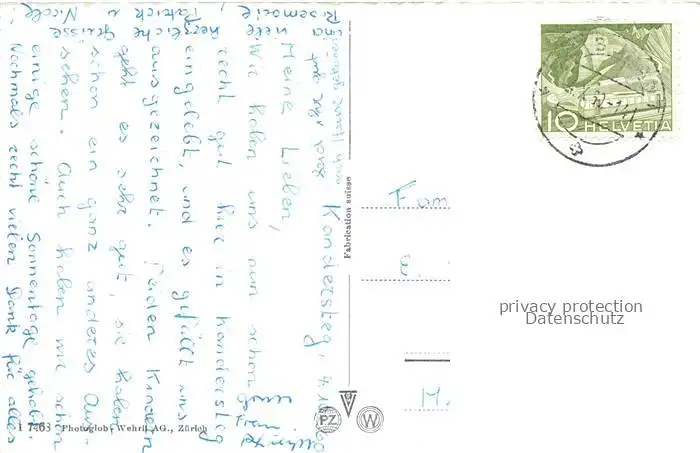 Kandersteg, 4.
Meine Lieben,
Wir haben uns nun schon
recht gut hier in Kandersteg
eingelebt, und es gefällt uns
ausgezeichnet. Beiden Kindern
geht es sehr gut, sie haben
schon ein ganz anderes Aus-
sehen. Auch haben wir schon
einige schöne Sonnentage gehabt.
Nochmals recht vielen Dank für alles
und viele
herzliche Grüsse
Rosemarie,
Patrick u
Nicole
Fam
E.
M.
Fabrication suisse
1 7463 Photoglob-Wehrli AG., Zürich
PZ
W
10 HELVETIA
privacy protection
Datenschutz